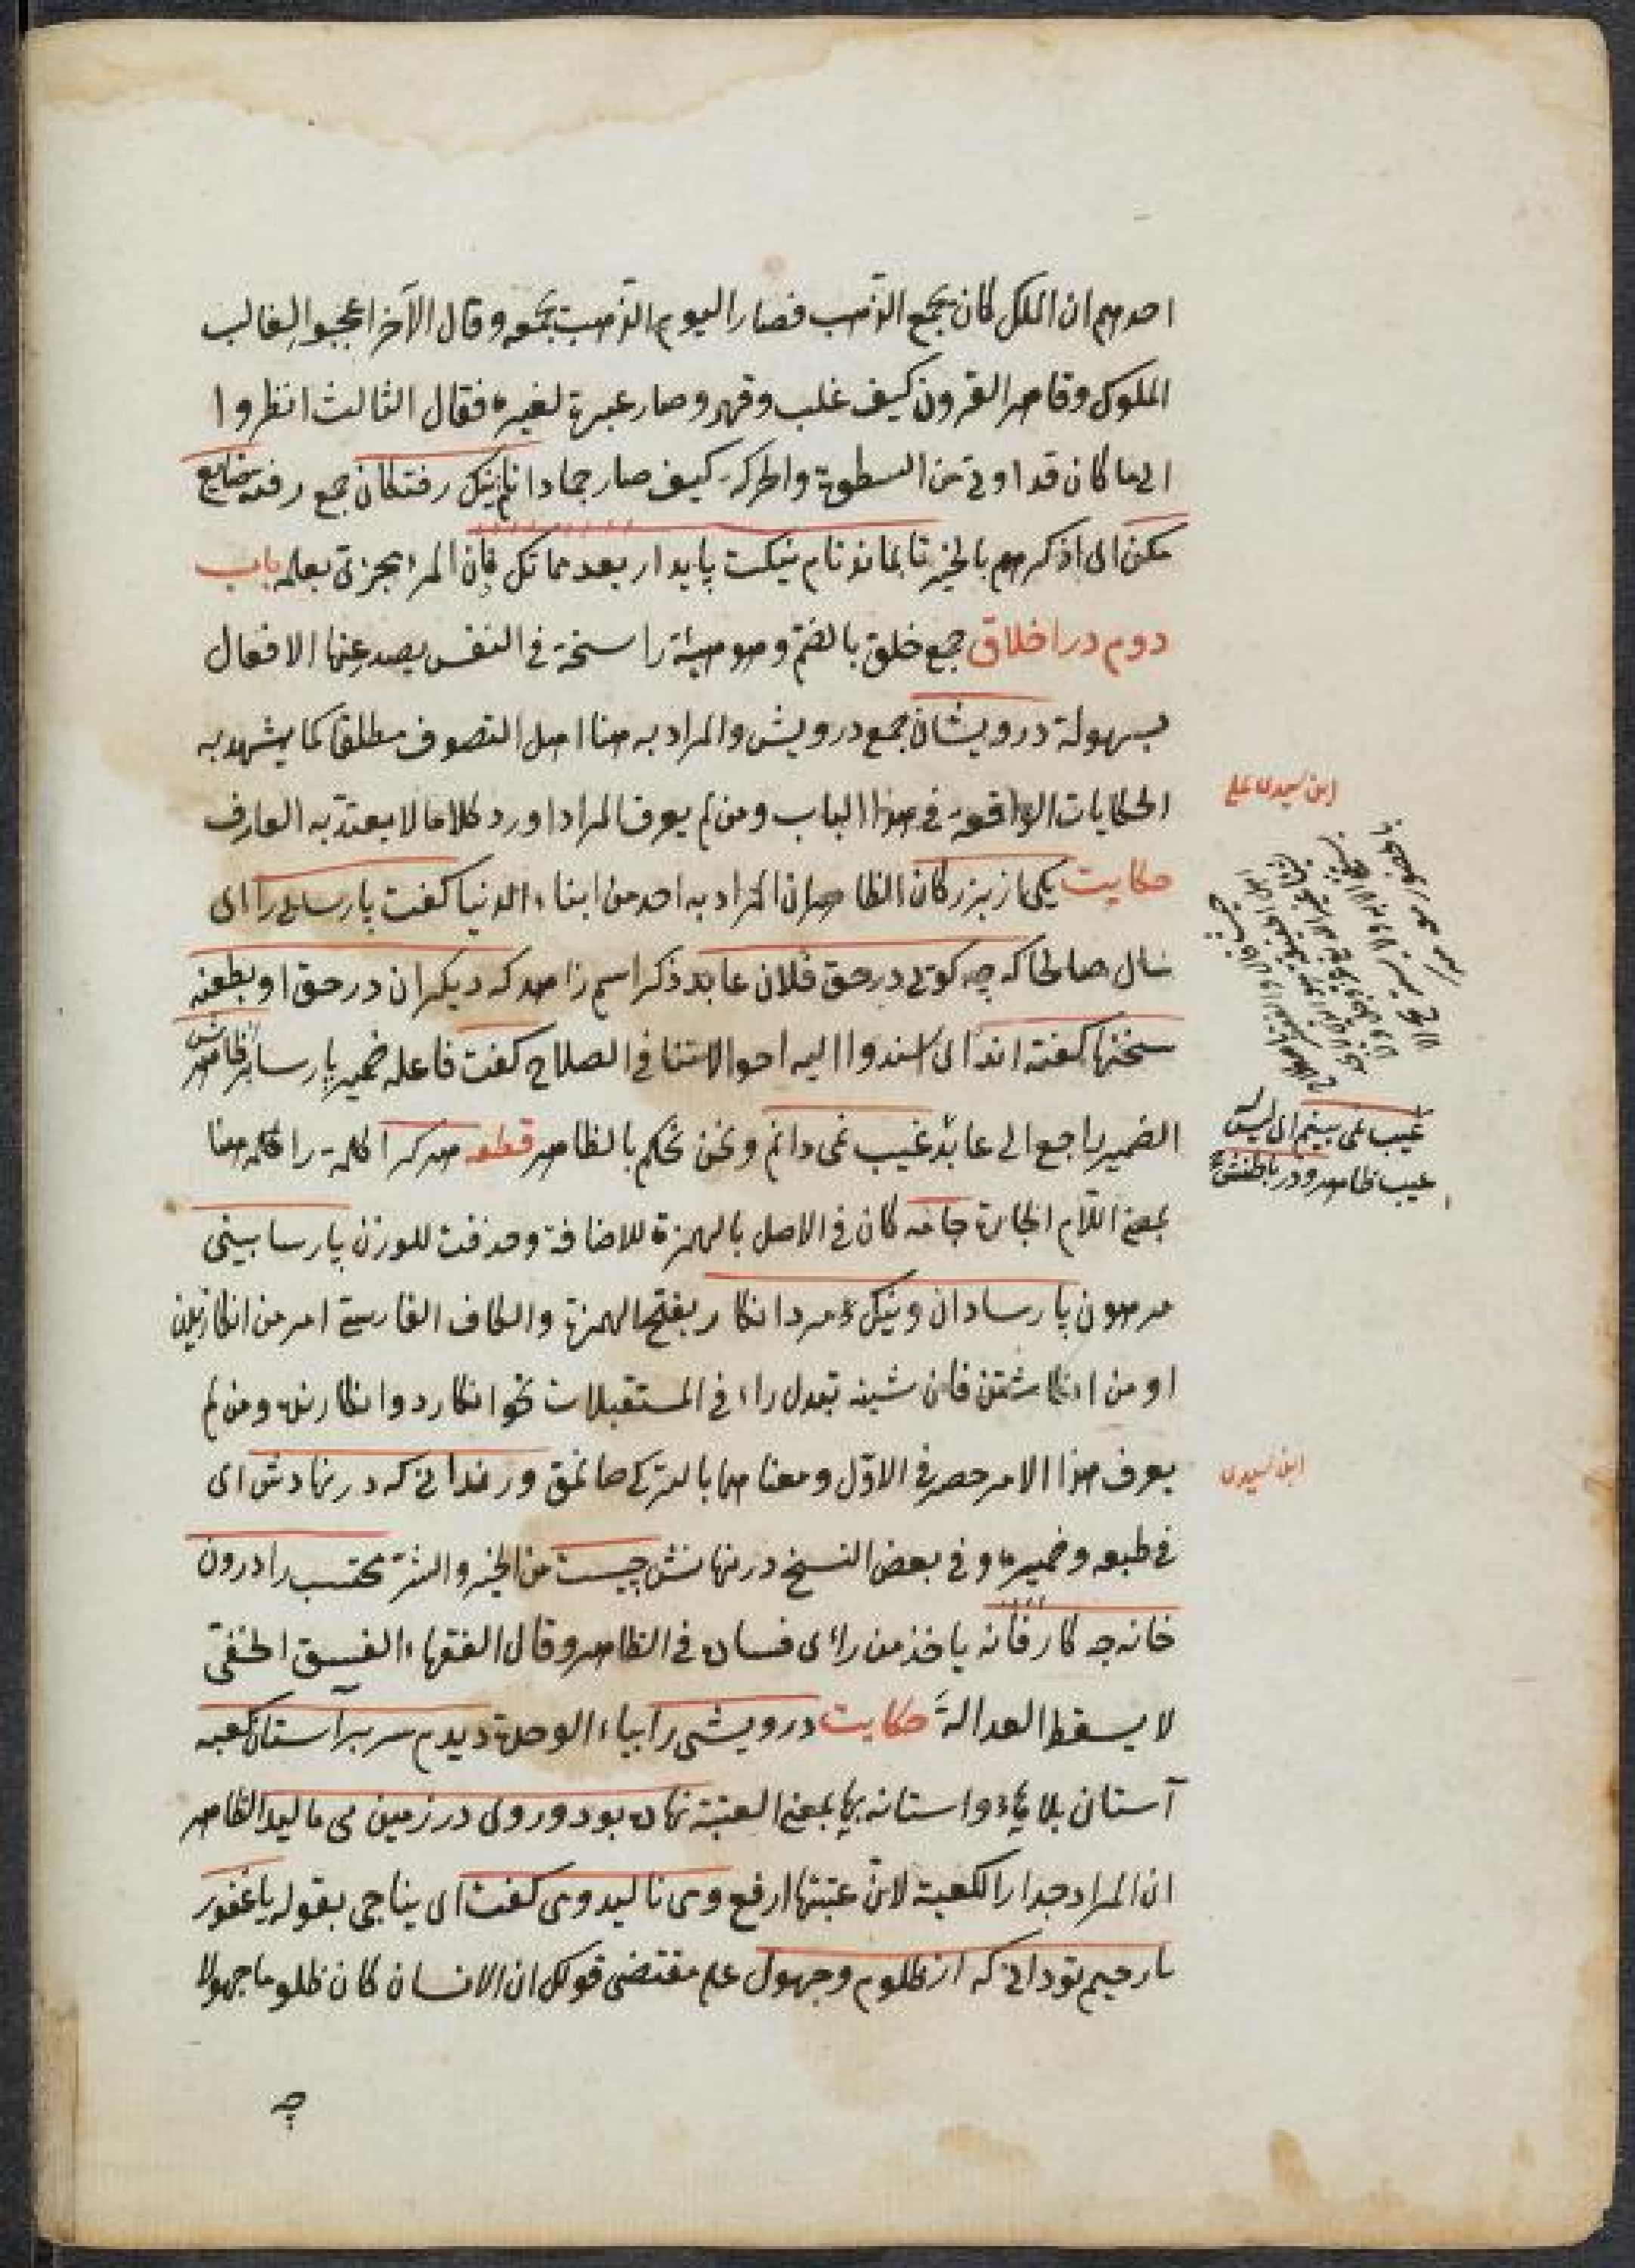 احدهم ان الملك كان يجمع الذّهب فصار اليوم الذّهب يجمعه وقال الآخر اعجبوا لغالب
الملوك وقاهر القرون كيف غلب وقهر وصار عبرة لغيره فقال الثالث انظروا
الى ما كان قد اوتى من السطوة والحركة كيف صار جمادا نام نيك رفتكان جمع رفته ضايع
مكن اى اذكرهم بالخير تا بماند نام نيكت پايدار بعد مماتك فان المرء يجزى بعمله باب
دوم در اخلاق جمع خلق بالضمّ وهو هيئة راسخة فى النفس يصدر عنها الافعال
بسهولة درويشان جمع درويش والمراد به هنا اهل التصوف مطلقا كما يشهد به
الحكايات الواقعة فى هذا الباب ومن لم يعرف المراد اورد كلاما لا يعتدّ به العارف
حكايت يكى از بزركان الظاهر ان المراد به احد من ابناء الدنيا كفت پارسايى را اى
سال صالحا كه چه كويى در حق فلان عابد ذكر اسم زاهد كه ديكران در حق او بطعنه
سخنها كفته اند اى اسندوا اليه احوالا تنافى الصلاح كفت فاعله ضمير پارسا بر ظاهرش
الضمير راجع الى عابد غيب نمى دانم ونحن نحكم بالظاهر قطعه هركرا كلمة را كلمه هنا
بمعنى اللّام الجارة جامه كان فى الاصل بالهمزة للاضافة وحذفت للوزن پارسا بينى
مرهون پارسا دان ونيك مرد انكار بفتح الهمزة والكاف الفارسية امر من انكاريدن
او من انكاشتن فان شينه تبدل راء فى المستقبلات نحو انكارد وانكارنده ومن لم
يعرف هذا الامر حصر فى الاوّل ومعناهما بالتركى صانمق ور ندانى كه در نهادش اى
فى طبعه وضميره وفى بعض النسخ در نهانش چيست من الخير والشرّ محتسب را درون
خانه چه كار فانه ياخذ من رأى فساده فى الظاهر وقال الفقهاء الفسق الخفىّ
لا يسقط العدالة حكايت درويشى را بياء الوحدة ديدم سر بر آستان كعبه
آستان بلا هاء واستانه بها بمعنى العتبة نهاده بود وروى در زمين مى ماليد الظاهر
ان المراد جدار الكعبة لانّ عتبتها ارفع ومى ناليد ومى كفت اى يناجى بقوله يا غفور
يا رحيم تو دانى كه از ظلوم وجهول على مقتضى قولك ان الانسان كان ظلوما جهولا
چه
ابن سيدى على
غيب نمى بينم اى ليس
عيب ظاهر ودر باطنش
ابن سيدى